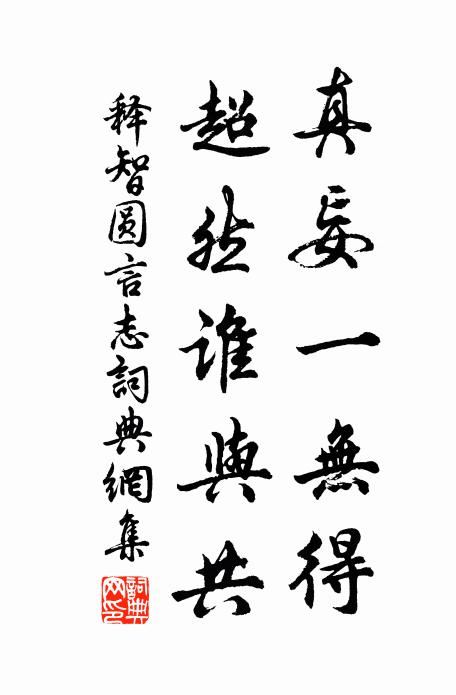 真妄一無得
超然誰與共
释智圆言志詞典網集
詞典網印